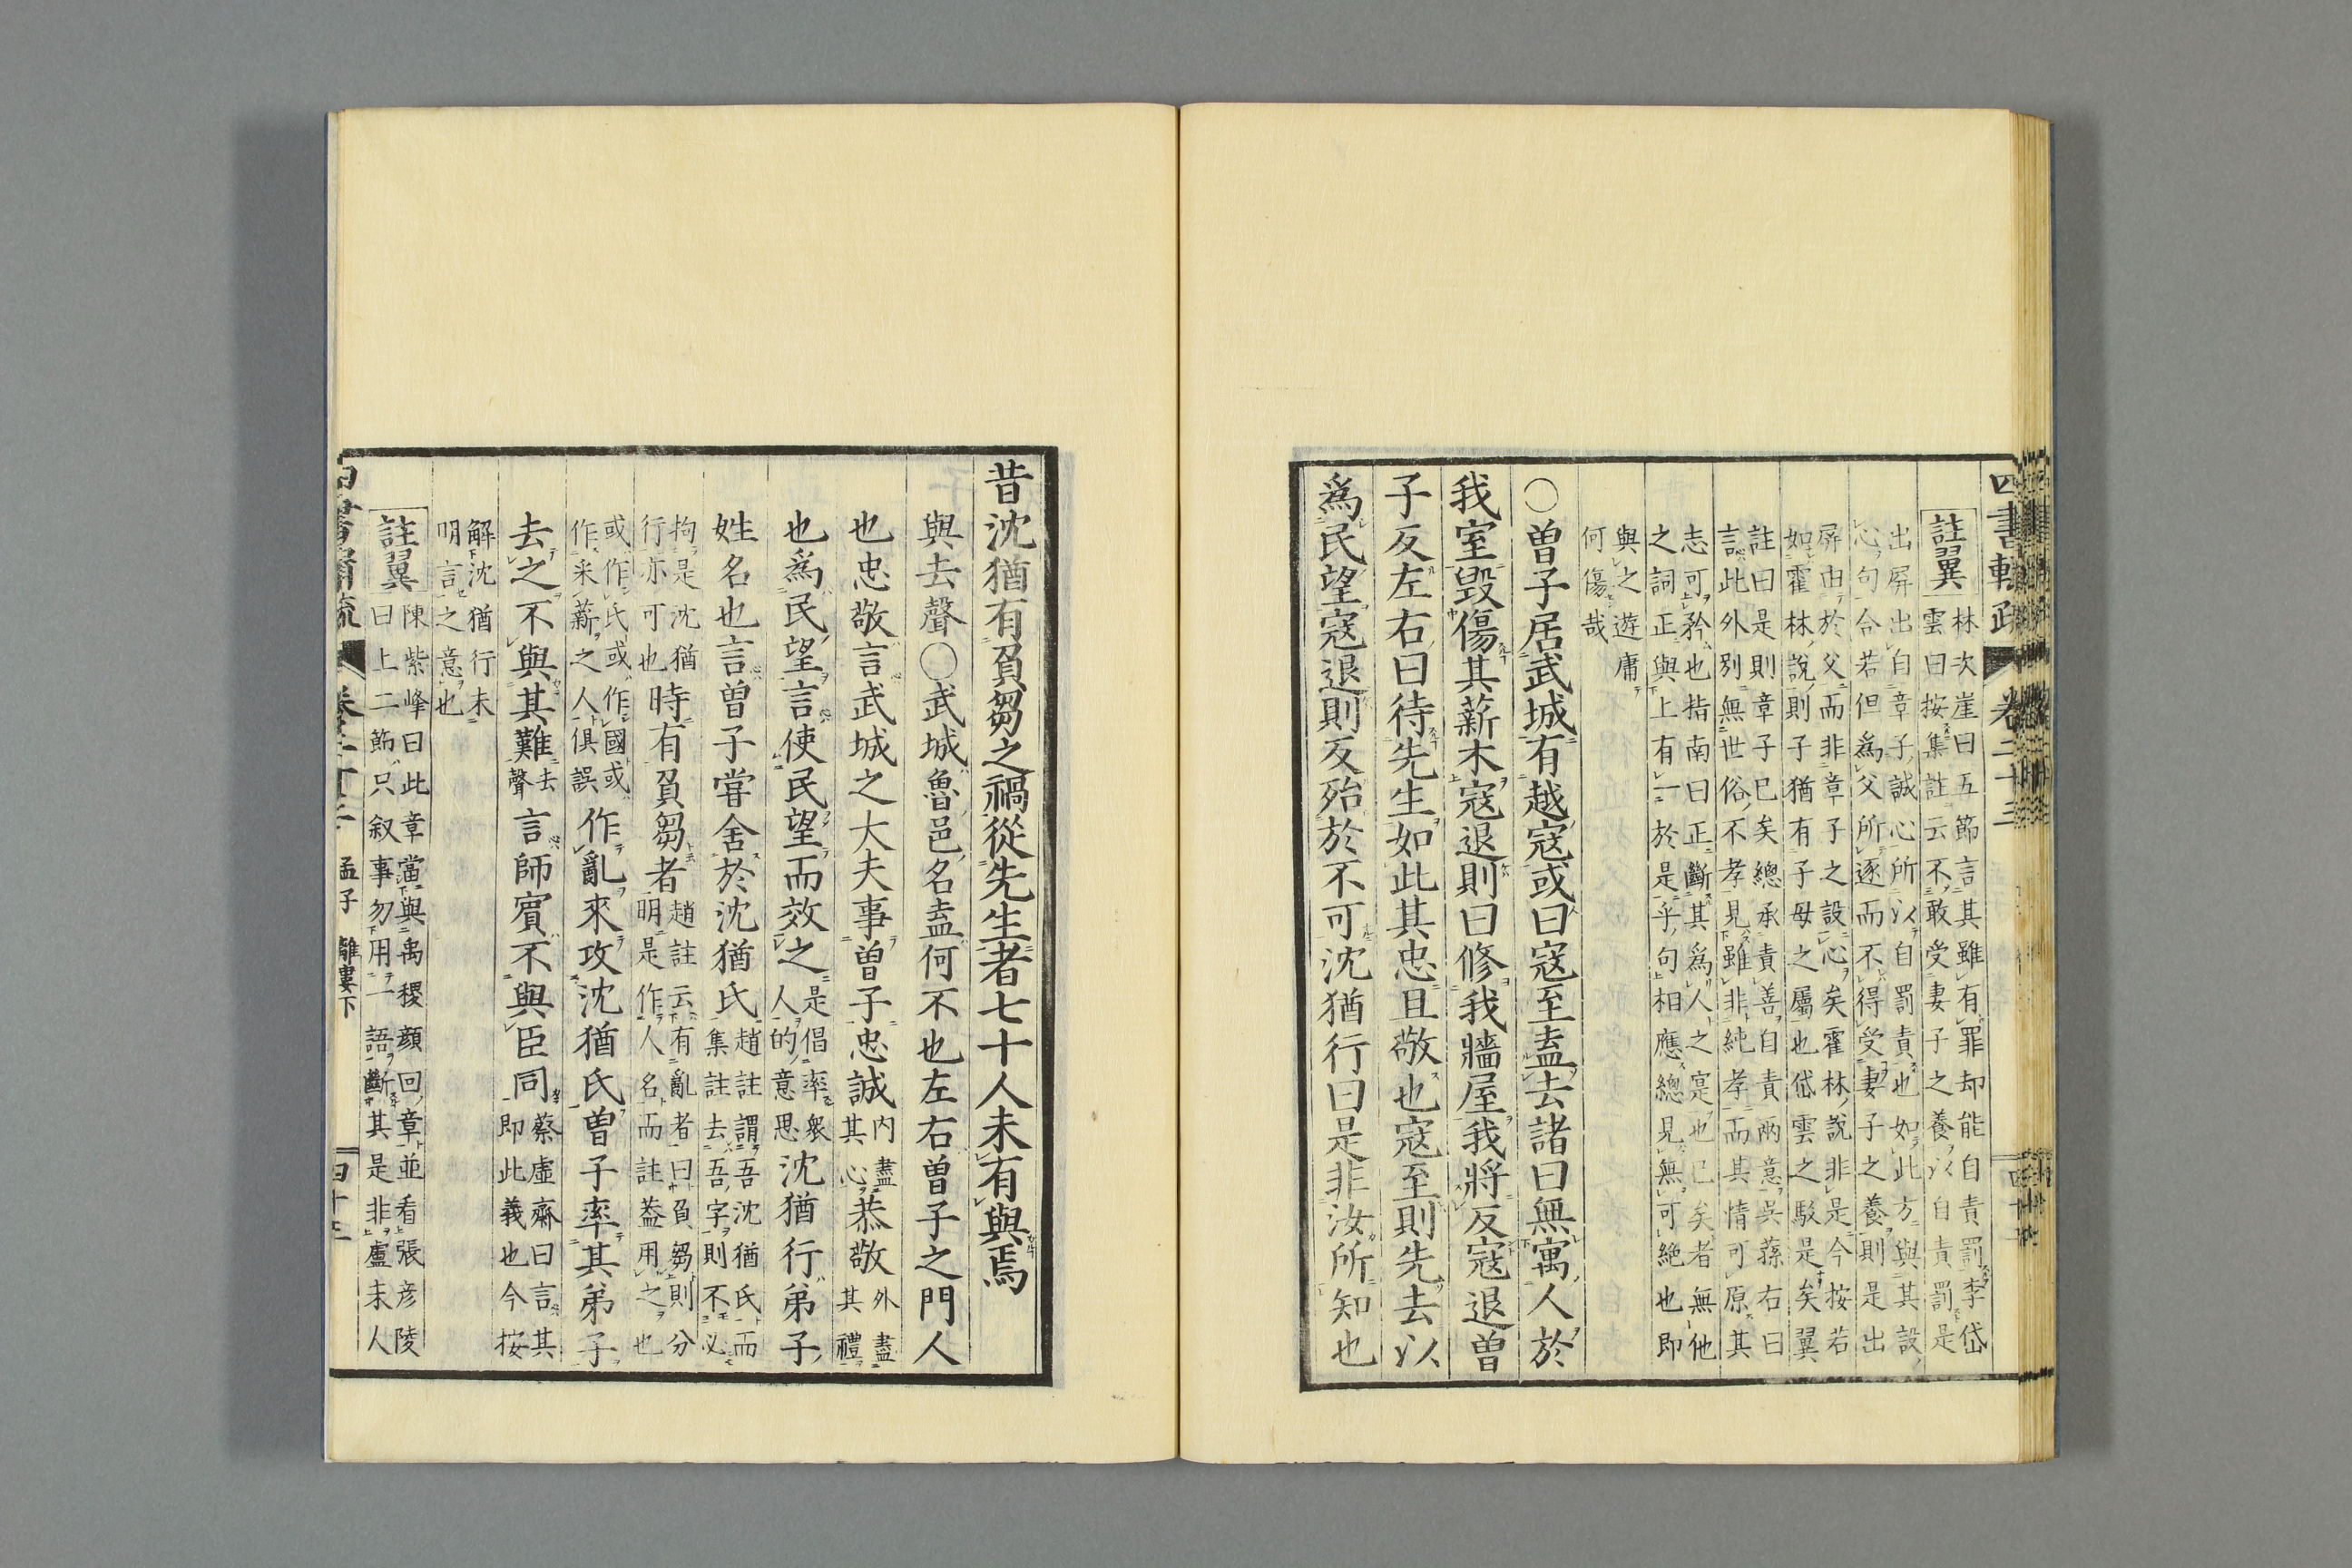 四書輯疏 卷二十三
註翼 林次崖曰五節言其雖有罪却能自責罰李岱
雲曰按集註云不敢受妻子之養以自責罰是
出屏出自章子誠心所以自罰責也如此方與其設
心句合若但為父所逐而不得受妻子之養則是出
屏由於父而非章子之設心矣霍林說非是今按若
如霍林說則子猶有子母之屬也岱雲之駁是矣翼
註曰是則章子已矣總承責善自責兩意吳蓀右曰
言此外別無世俗不孝見雖非純孝而其情可原其
志可矜也指南曰正斷其為人之寔也已矣者無他
之詞正與上有一於是乎句相應總見無可絕也即
與之遊庸
何傷哉
○曾子居武城有越寇或曰寇至盍去諸曰無寓人於
我室毀傷其薪木寇退則曰修我牆屋我將反寇退曾
子反左右曰待先生如此其忠且敬也寇至則先去以
為民望寇退則反殆於不可沈猶行曰是非汝所知也
昔沈猶有負芻之禍從先生者七十人未有與焉
與去聲○武城魯邑名盍何不也左右曾子之門人
也忠敬言武城之大夫事曾子忠誠內盡其心恭敬外盡其禮
也為民望言使民望而效之是倡率衆人的意思沈猶行弟子
姓名也言曾子嘗舍於沈猶氏趙註謂吾沈猶氏而集註去吾字則不必
拘是沈猶行亦可也時有負芻者趙註云有亂者曰負芻則分明是作人名而註葢用之也
或作氏或作國或作采薪之人俱誤作亂來攻沈猶氏曾子率其弟子
去之不與其難去聲言師賓不與臣同蔡虛齋曰言其即此義也今按
解沈猶行未
明言之意也
註翼 陳紫峰曰此章當與禹稷顏回章並看張彦陵
曰上二節只叙事勿用一語斷其是非盧未人
孟子 離婁下